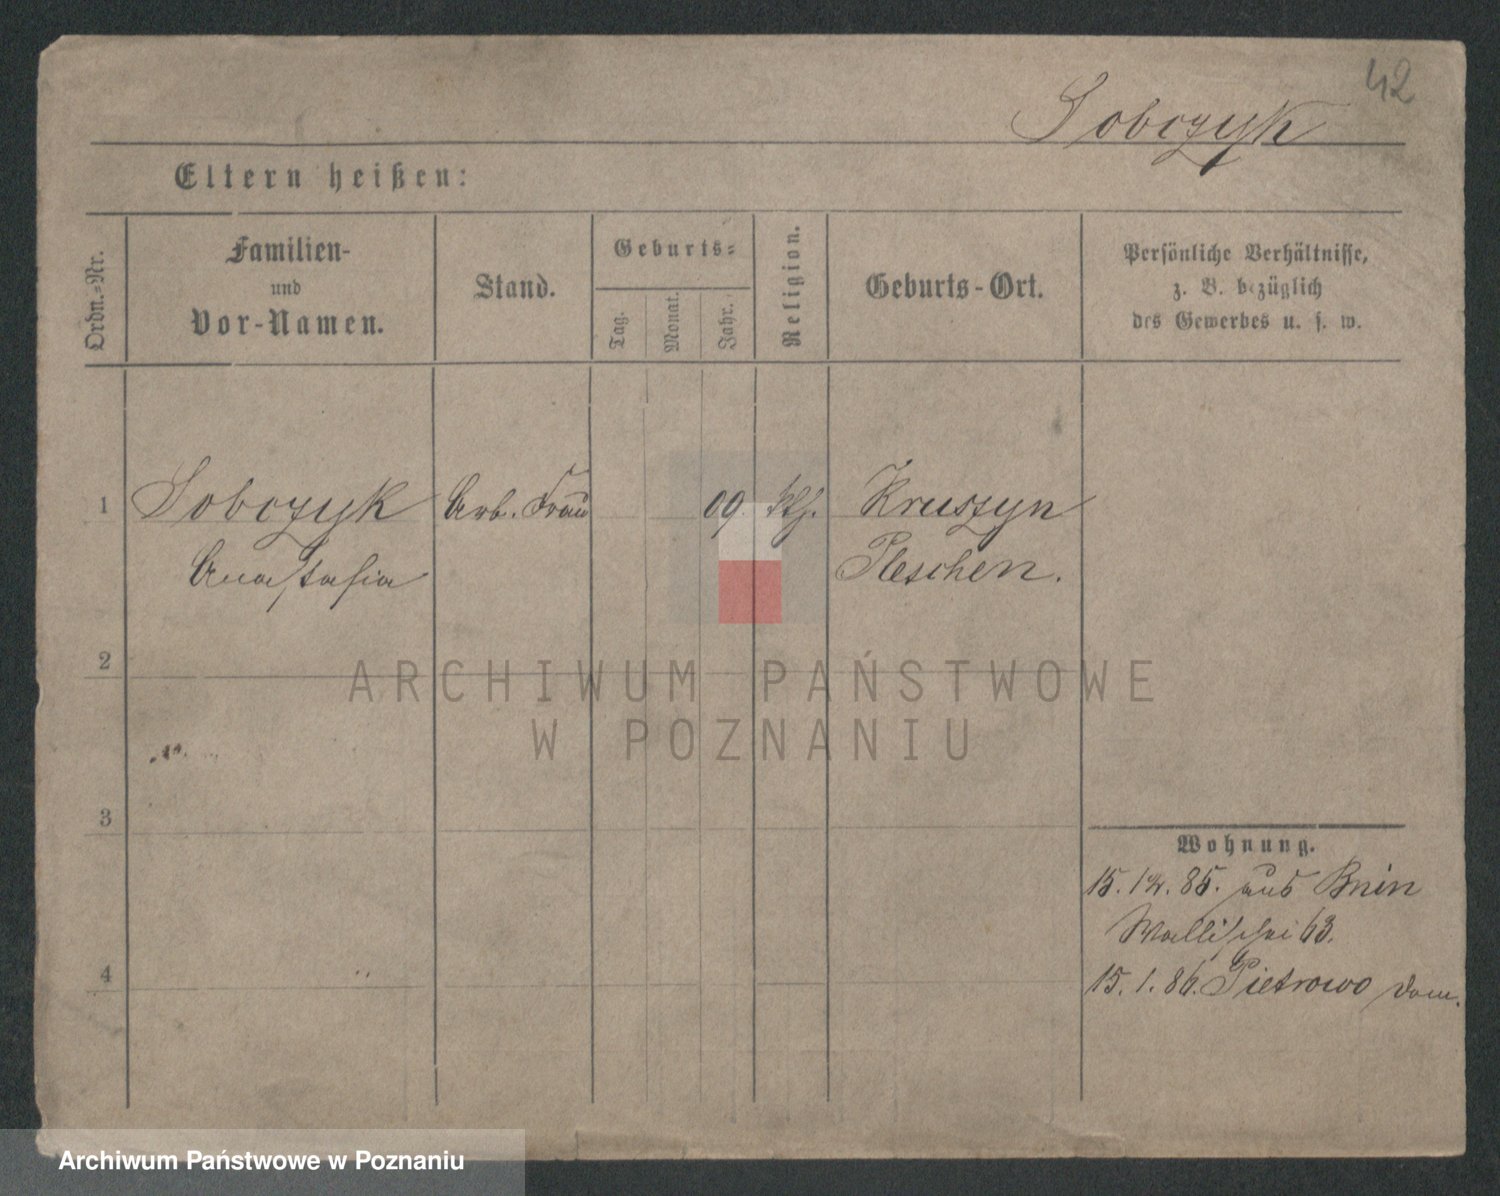 42
Sobczyk
Eltern heißen:
Ordn.-Nr.
Familien-
und
Vor-Namen.
Stand.
Geburts-
Tag.
Monat.
Jahr.
Religion.
Geburts-Ort.
Persönliche Verhältnisse,
z. B. bezüglich
des Gewerbes u. s. w.
1
Sobczyk
Arb. Frau
09.
kth.
Kruszyn
Anastasia
Pleschen.
2
ARCHIWUM PAŃSTWOWE
W POZNANIU
3
Wohnung.
15. 12. 85. aus Bnin
Wallischei 63.
4
15. 1. 86. Pietrowo Dom.
Archiwum Państwowe w Poznaniu